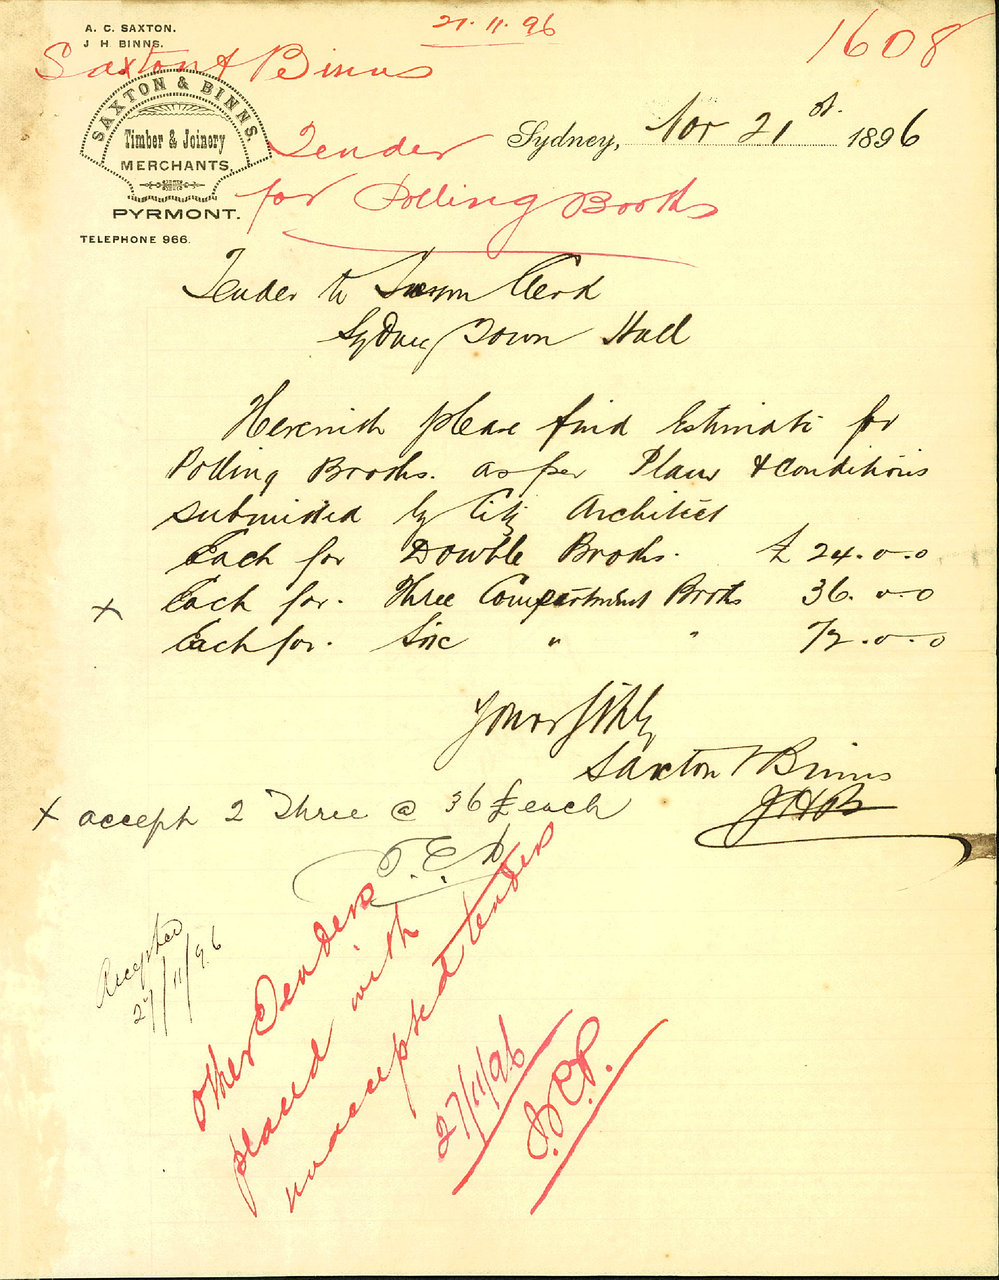 A. C. SAXTON.
J. H. BINNS.
21.11.96
1608
Saxton & Binns
SAXTON & BINNS.
Timber & Joinery
MERCHANTS,
PYRMONT.
TELEPHONE 966.
Sydney, Nov 21st. 1896
Tender
for Polling Booths
Tender to Town Clerk
Sydney Town Hall
Herewith please find Estimate for
Polling Booths. as per Plans & Conditions
submitted by City Architect
Each for Double Booths. £ 24.0.0
x Each for. Three Compartment Booths 36.0.0
Each for. Six " " 72.0.0
Yours fithly
Saxton & Binns
JHB
x accept 2 Three @ 36 £ each
Accepted
27/11/96
Other Tenders
placed with
unaccepted tenders
27/11/96